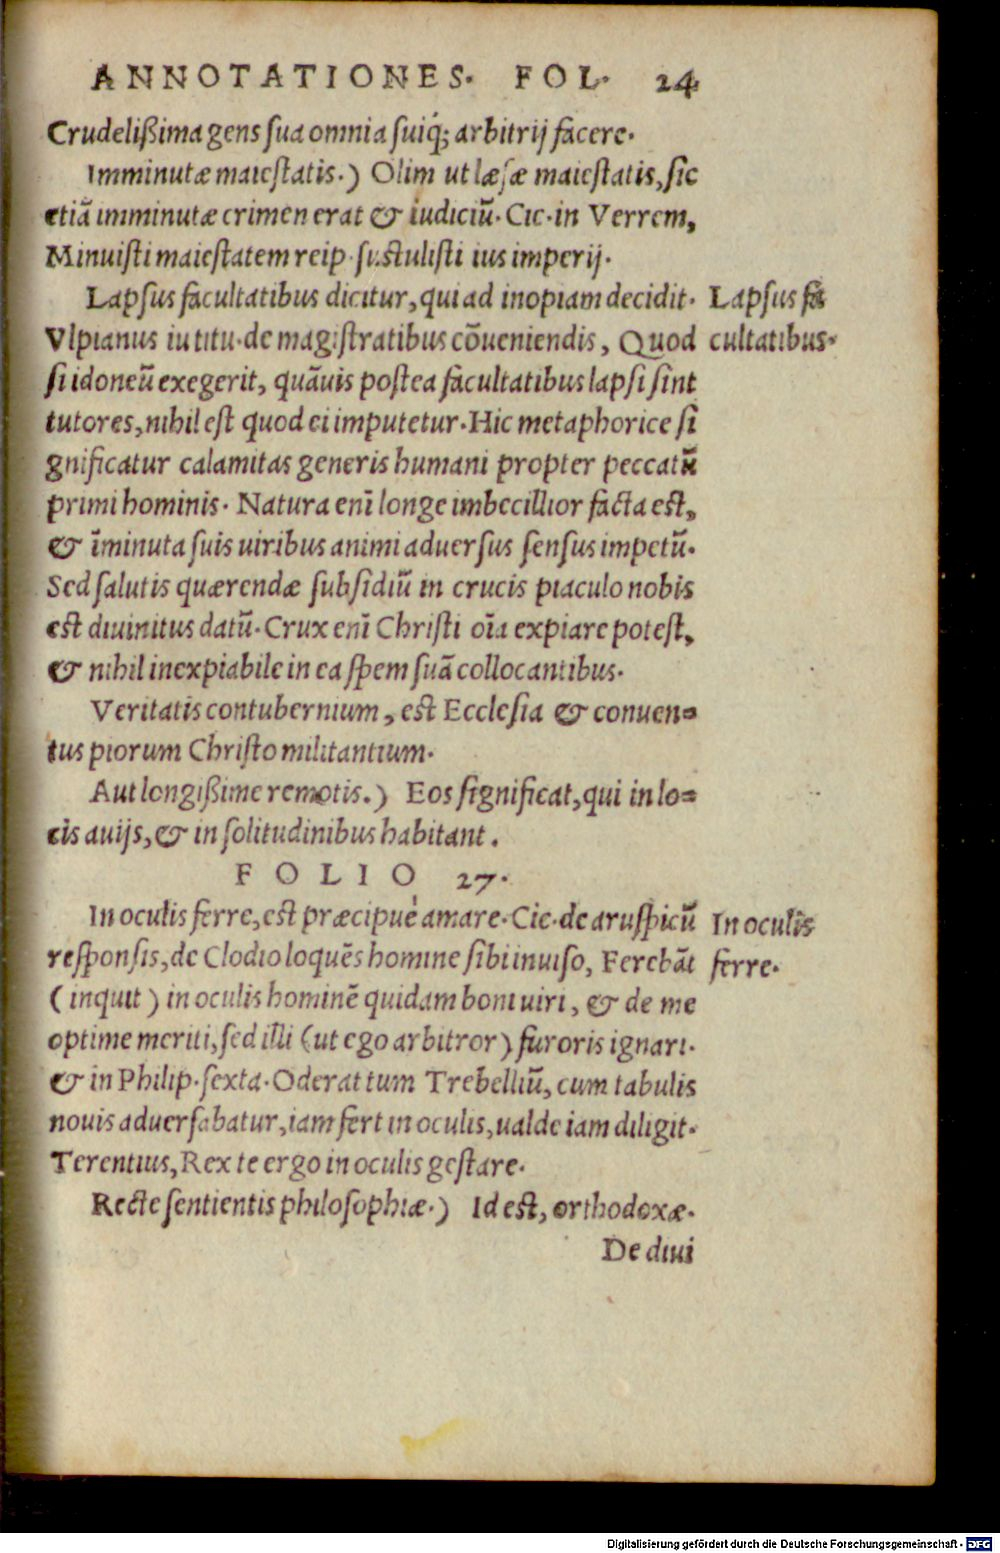 ANNOTATIONES. FOL. 24
Crudelißima gens sua omnia suiq́; arbitrij facere.
Imminutæ maiestatis.) Olim ut læsæ maiestatis, sic
etiā imminutæ crimen erat & iudiciū. Cic. in Verrem,
Minuisti maiestatem reip. sustulisti ius imperij.
Lapsus facultatibus dicitur, qui ad inopiam decidit.
Lapsus fa
Vlpianus iu titu. de magistratibus cōueniendis, Quod
cultatibus.
si idoneū exegerit, quāuis postea facultatibus lapsi sint
tutores, nihil est quod ei imputetur. Hic metaphorice si
gnificatur calamitas generis humani propter peccatū
primi hominis. Natura enī longe imbecillior facta est,
& īminuta suis uiribus animi aduersus sensus impetū.
Sed salutis quærendæ subsidiū in crucis piaculo nobis
est diuinitus datū. Crux enī Christi oīa expiare potest,
& nihil inexpiabile in ea spem suā collocantibus.
Veritatis contubernium, est Ecclesia & conuen-
tus piorum Christo militantium.
Aut longißime remotis.) Eos significat, qui in lo-
cis auijs, & in solitudinibus habitant.
FOLIO 27.
In oculis ferre, est præcipuè amare. Cic. de aruspicū
In oculis
responsis, de Clodio loquēs homine sibi inuiso, Ferebāt
ferre.
(inquit) in oculis hominē quidam boni uiri, & de me
optime meriti, sed illi (ut ego arbitror) furoris ignari.
& in Philip. sexta. Oderat tum Trebelliū, cum tabulis
nouis aduersabatur, iam fert in oculis, ualde iam diligit.
Terentius, Rex te ergo in oculis gestare.
Recte sentientis philosophiæ.) Id est, orthodoxæ.
De diui
Digitalisierung gefördert durch die Deutsche Forschungsgemeinschaft - DFG